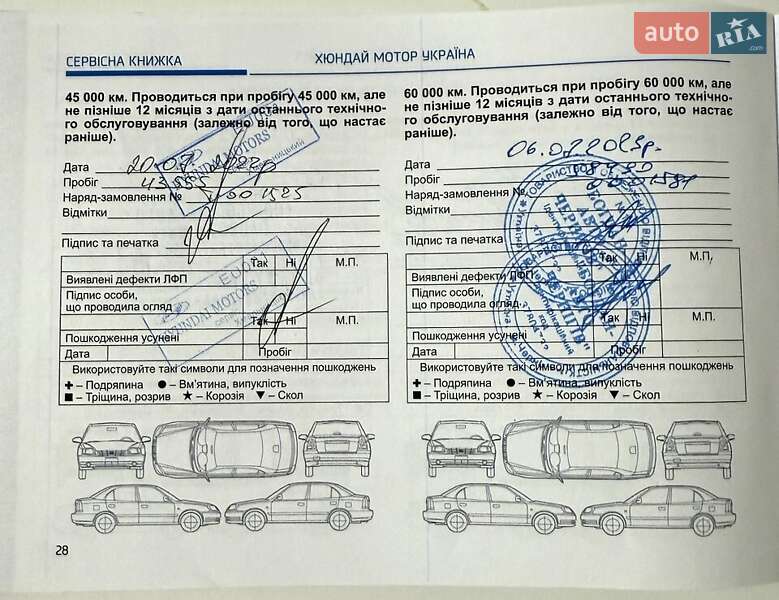 auto RIA.com
СЕРВІСНА КНИЖКА
ХЮНДАЙ МОТОР УКРАЇНА
45 000 км. Проводиться при пробігу 45 000 км, але
не пізніше 12 місяців з дати останнього технічно-
го обслуговування (залежно від того, що настає
раніше).
Дата
Пробіг
Наряд-замовлення №
Відмітки
Підпис та печатка
HYUNDAI MOTORS
Так Ні М.П.
Виявлені дефекти ЛФП
Підпис особи,
що проводила огляд
Так Ні М.П.
Пошкодження усунені
Дата Пробіг
HYUNDAI MOTORS
Використовуйте такі символи для позначення пошкоджень
– Подряпина – Вм'ятина, випуклість
– Тріщина, розрив – Корозія – Скол
60 000 км. Проводиться при пробігу 60 000 км, але
не пізніше 12 місяців з дати останнього технічно-
го обслуговування (залежно від того, що настає
раніше).
Дата
Пробіг
Наряд-замовлення №
Відмітки
Підпис та печатка
Так Ні М.П.
Виявлені дефекти ЛФП
Підпис особи,
що проводила огляд
Так Ні М.П.
Пошкодження усунені
Дата Пробіг
Використовуйте такі символи для позначення пошкоджень
– Подряпина – Вм'ятина, випуклість
– Тріщина, розрив – Корозія – Скол
28